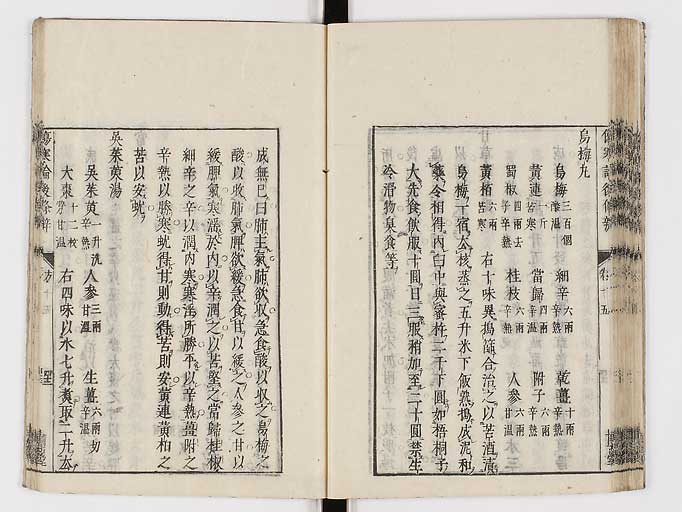 烏梅丸
烏梅三百個酸溫 細辛六兩辛熱 乾薑十兩辛熱
黃連一斤苦寒 當歸四兩辛溫 附子六兩辛熱
蜀椒四兩去子辛熱 桂枝六兩辛熱 人參六兩甘溫
黃栢六兩苦寒 右十味異搗篩合治之以苦酒漬
烏梅一宿去核蒸之五升米下飯熟搗成泥和
藥令相得內臼中與蜜杵二千下圓如梧桐子
大先食飲服十圓日三服稍加至二十圓禁生
冷滑物臭食等
成無已曰肺主氣肺欲收急食酸以收之烏梅之
酸以收肺氣脾欲緩急食甘以緩之人參之甘以
緩脾氣寒淫於內以辛潤之以苦堅之當歸桂椒
細辛之辛以潤內寒寒淫所勝平以辛熱薑附之
辛熱以勝寒蚘得甘則動得苦則安黃連黃栢之
苦以安蚘
吳茱萸湯
吳茱萸一升洗辛熱 人參三兩甘溫 生薑六兩切辛溫
大棗十二枚甘溫 右四味以水七升煮取二升去